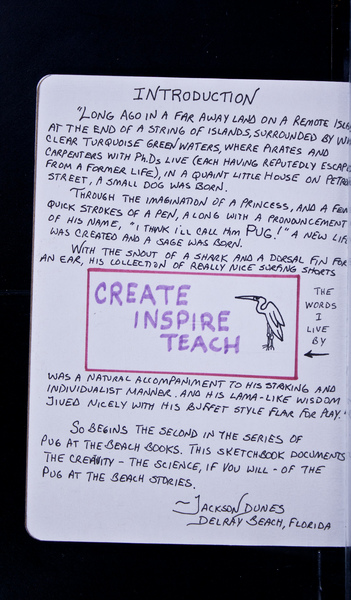 INTRODUCTION
"LONG AGO IN A FAR AWAY LAND ON A REMOTE
AT THE END OF A STRING OF ISLANDS, SURROUNDED BY
CLEAR TURQUOISE GREEN WATERS, WHERE PIRATES AND
CARPENTERS WITH PhDs LIVE (EACH HAVING REPUTEDLY
FROM A FORMER LIFE), IN A QUAINT LITTLE HOUSE ON
STREET, A SMALL DOG WAS BORN.
THROUGH THE IMAGINATION OF A PRINCESS, AND A FEW
QUICK STROKES OF A PEN, ALONG WITH A PRONOUNCEMENT
OF HIS NAME, "I THINK I'LL CALL HIM PUG!" A NEW
WAS CREATED AND A SAGE WAS BORN.
WITH THE SNOUT OF A SHARK AND A DORSAL FIN FOR
AN EAR, HIS COLLECTION OF REALLY NICE SURFING SHORTS
CREATE
INSPIRE
TEACH
THE
WORDS
I
LIVE
BY
WAS A NATURAL ACCOMPANIMENT TO HIS STRIKING AND
INDIVIDUALIST MANNER. AND HIS LAMA-LIKE WISDOM
JIVED NICELY WITH HIS BUFFET STYLE FLAR FOR PLAY."
SO BEGINS THE SECOND IN THE SERIES OF
PUG AT THE BEACH BOOKS. THIS SKETCHBOOK DOCUMENTS
THE CREATIVITY - THE SCIENCE, IF YOU WILL - OF THE
PUG AT THE BEACH STORIES.
~JACKSON DUNES
DELRAY BEACH, FLORIDA